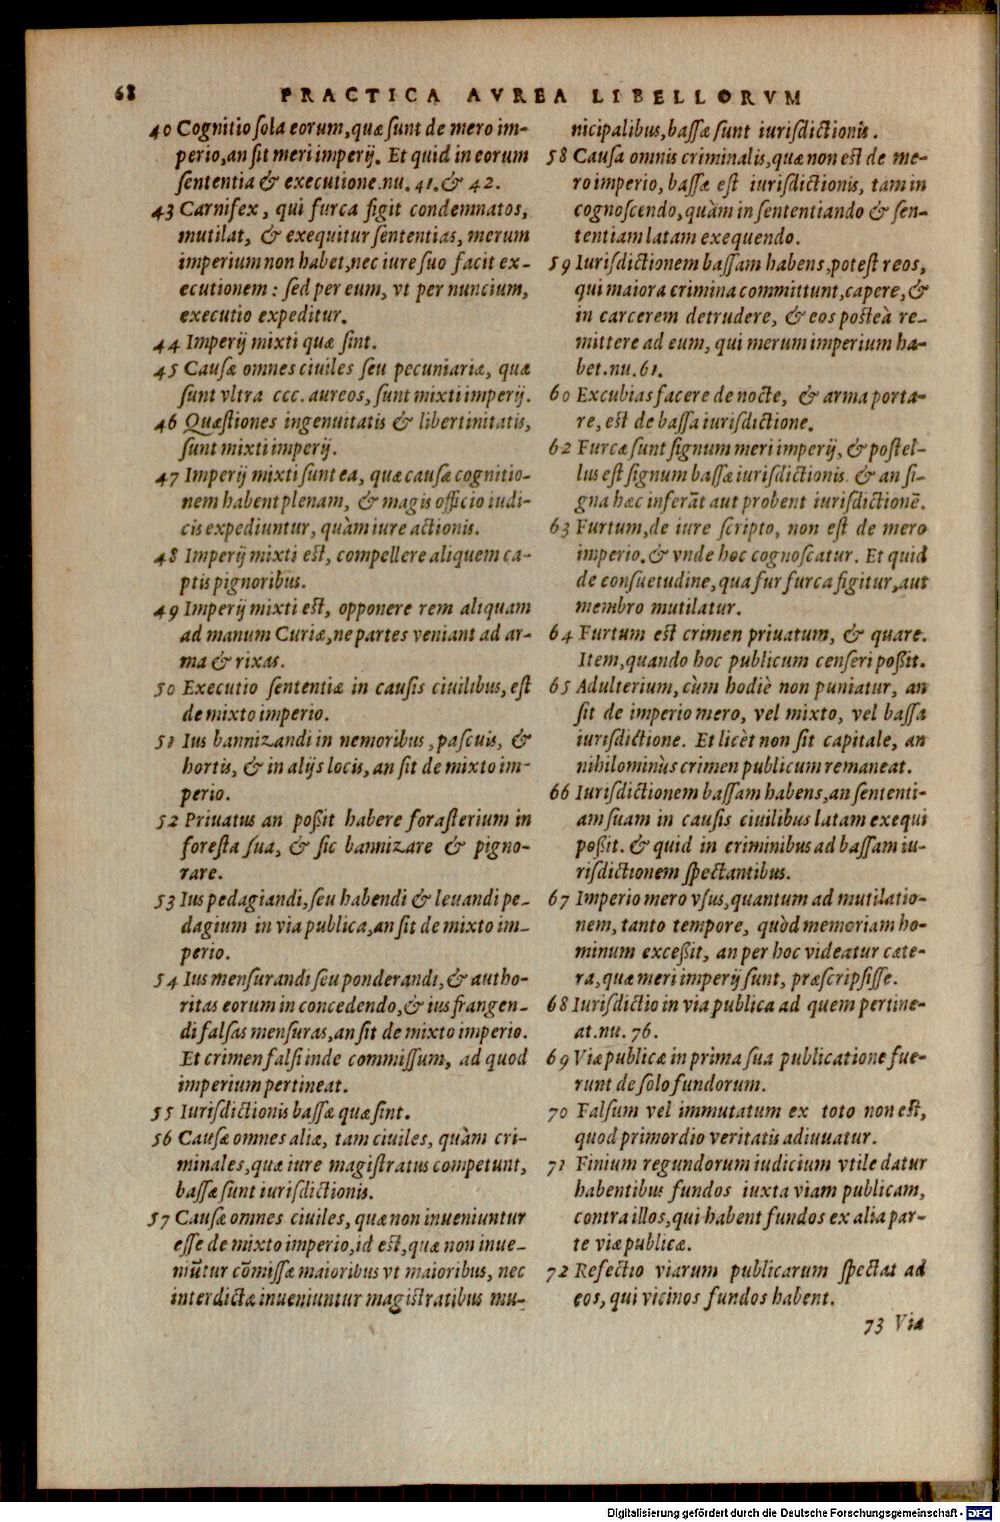 68 PRACTICA AVREA LIBELLORVM
40 Cognitio ſola eorum, quæ ſunt de mero im-
perio, an ſit meri imperij. Et quid in eorum
ſententia & executione. nu. 41. & 42.
43 Carnifex, qui furca figit condemnatos,
mutilat, & exequitur ſententias, merum
imperium non habet, nec iure ſuo facit ex-
ecutionem: ſed per eum, vt per nuncium,
executio expeditur.
44 Imperij mixti quæ ſint.
45 Cauſæ omnes ciuiles ſeu pecuniariæ, quæ
ſunt vltra ccc. aureos, ſunt mixti imperij.
46 Quæſtiones ingenuitatis & libertinitatis,
ſunt mixti imperij.
47 Imperij mixti ſunt ea, quæ cauſæ cognitio-
nem habent plenam, & magis officio iudi-
cis expediuntur, quàm iure actionis.
48 Imperij mixti eſt, compellere aliquem ca-
ptis pignoribus.
49 Imperij mixti eſt, opponere rem aliquam
ad manum Curiæ, ne partes veniant ad ar-
ma & rixas.
50 Executio ſententiæ in cauſis ciuilibus, eſt
de mixto imperio.
51 Ius bannizandi in nemoribus, paſcuis, &
hortis, & in alijs locis, an ſit de mixto im-
perio.
52 Priuatus an poßit habere foraſterium in
foreſta ſua, & ſic bannizare & pigno-
rare.
53 Ius pedagiandi, ſeu habendi & leuandi pe-
dagium in via publica, an ſit de mixto im-
perio.
54 Ius menſurandi ſeu ponderandi, & autho-
ritas eorum in concedendo, & ius frangen-
di falſas menſuras, an ſit de mixto imperio.
Et crimen falſi inde commiſſum, ad quod
imperium pertineat.
55 Iuriſdictionis baſſæ quæ ſint.
56 Cauſæ omnes aliæ, tam ciuiles, quàm cri-
minales, quæ iure magiſtratus competunt,
baſſæ ſunt iuriſdictionis.
57 Cauſæ omnes ciuiles, quæ non inueniuntur
eſſe de mixto imperio, id eſt, quæ non inue-
niũtur cõmiſſæ maioribus vt maioribus, nec
interdictæ inueniuntur magiſtratibus mu-
nicipalibus, baſſæ ſunt iuriſdictionis.
58 Cauſa omnis criminalis, quæ non eſt de me-
ro imperio, baſſæ eſt iuriſdictionis, tam in
cognoſcendo, quàm in ſententiando & ſen-
tentiam latam exequendo.
59 Iuriſdictionem baſſam habens, poteſt reos,
qui maiora crimina committunt, capere, &
in carcerem detrudere, & eos poſteà re-
mittere ad eum, qui merum imperium ha-
bet. nu. 61.
60 Excubias facere de nocte, & arma porta-
re, eſt de baſſa iuriſdictione.
62 Furcæ ſunt ſignum meri imperij, & poſtel-
lus eſt ſignum baſſæ iuriſdictionis. & an ſi-
gna hæc inferãt aut probent iuriſdictionẽ.
63 Furtum, de iure ſcripto, non eſt de mero
imperio. & vnde hoc cognoſcatur. Et quid
de conſuetudine, qua fur furca figitur, aut
membro mutilatur.
64 Furtum eſt crimen priuatum, & quare.
Item, quando hoc publicum cenſeri poßit.
65 Adulterium, cùm hodiè non puniatur, an
ſit de imperio mero, vel mixto, vel baſſa
iuriſdictione. Et licèt non ſit capitale, an
nihilominùs crimen publicum remaneat.
66 Iuriſdictionem baſſam habens, an ſententi-
am ſuam in cauſis ciuilibus latam exequi
poßit. & quid in criminibus ad baſſam iu-
riſdictionem ſpectantibus.
67 Imperio mero vſus, quantum ad mutilatio-
nem, tanto tempore, quòd memoriam ho-
minum exceßit, an per hoc videatur cæte-
ra, quæ meri imperij ſunt, præſcripſiſſe.
68 Iuriſdictio in via publica ad quem pertine-
at. nu. 76.
69 Viæ publicæ in prima ſua publicatione fue-
runt de ſolo fundorum.
70 Falſum vel immutatum ex toto non eſt,
quod primordio veritatis adiuuatur.
71 Finium regundorum iudicium vtile datur
habentibus fundos iuxta viam publicam,
contra illos, qui habent fundos ex alia par-
te viæ publicæ.
72 Refectio viarum publicarum ſpectat ad
eos, qui vicinos fundos habent.
73 Viæ
Digitalisierung gefördert durch die Deutsche Forschungsgemeinschaft - DFG